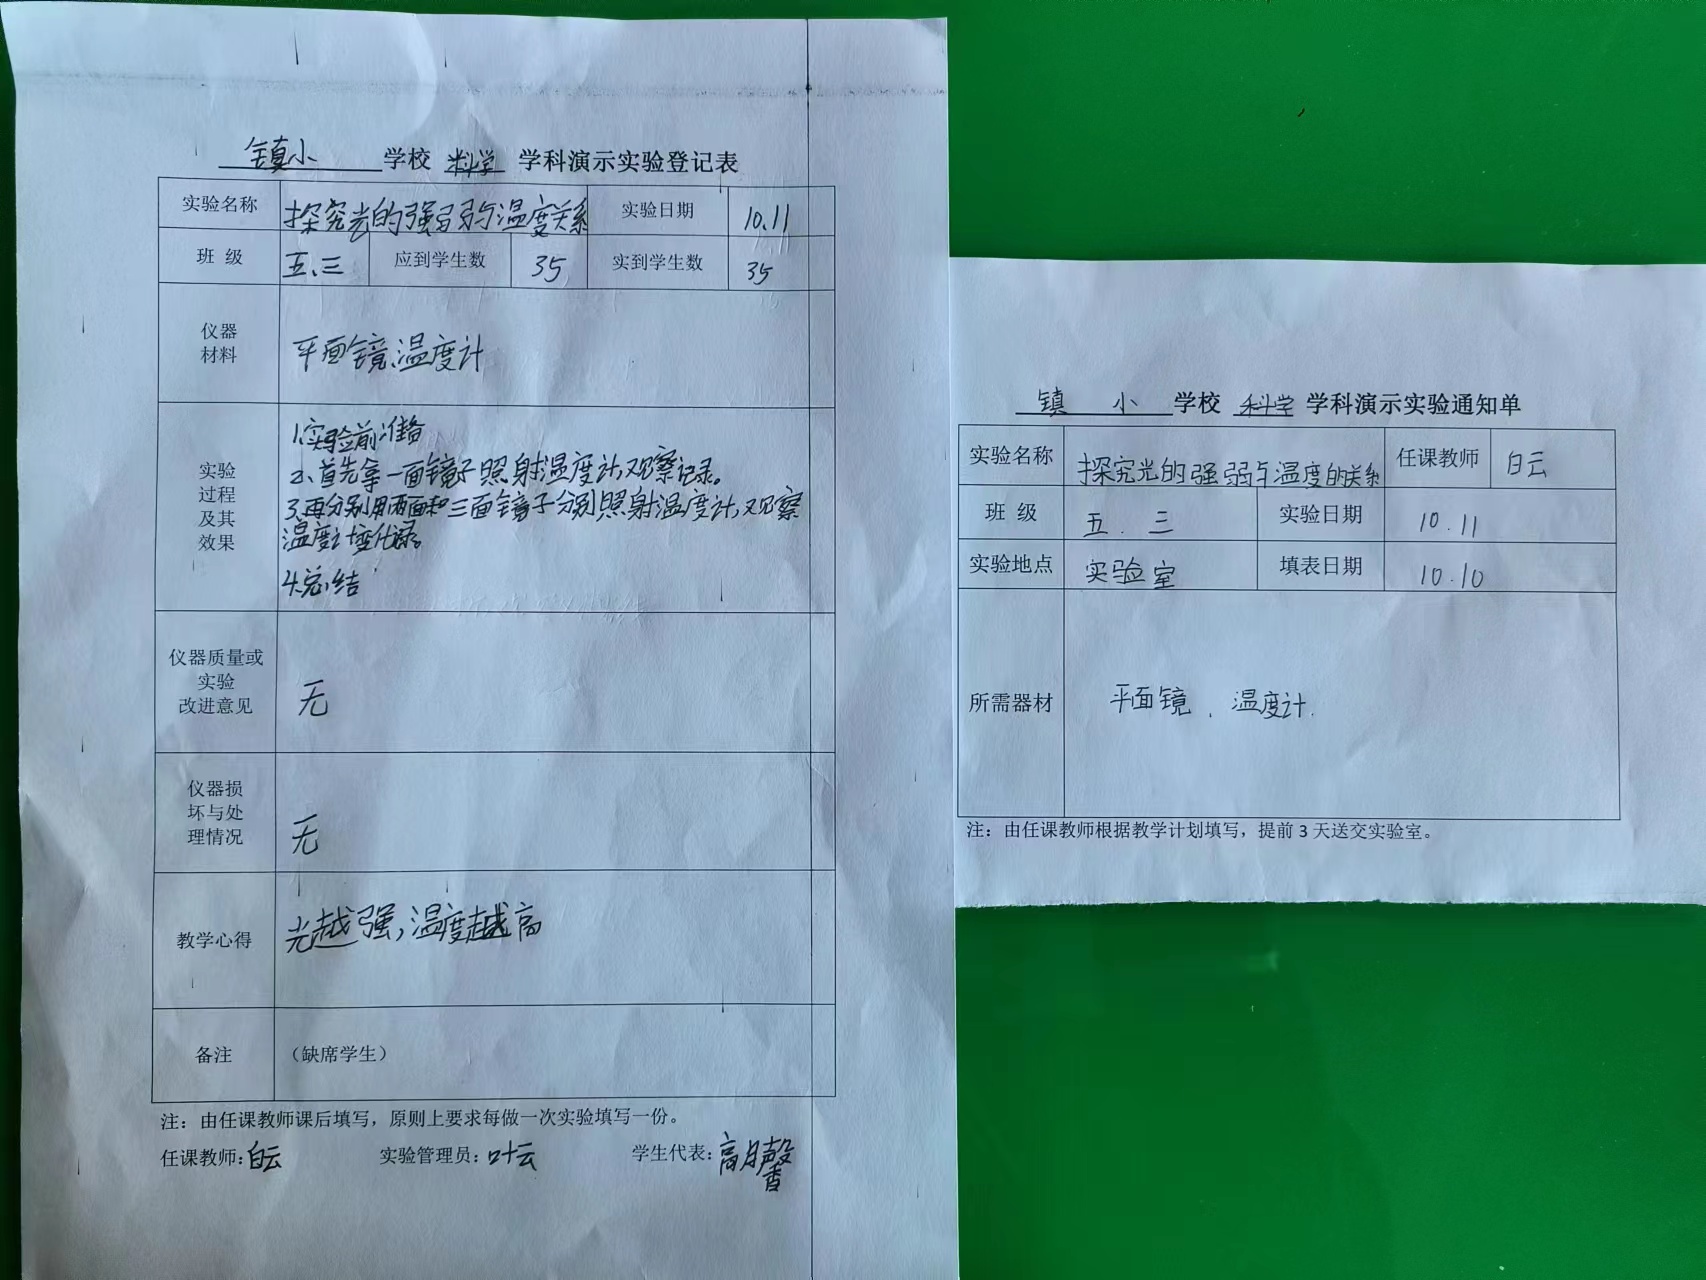 镇小 学校 科学 学科演示实验登记表
实验名称 探究光的强弱与温度关系 实验日期 10.11
班 级 五.三 应到学生数 35 实到学生数 35
仪器
材料
平面镜、温度计
实验
过程
及其
效果
1.实验前准备
2、首先拿一面镜子照射温度计,观察记录。
3、再分别用两面和三面镜子分别照射温度计,观察
温度计变化记录。
4.总结
仪器质量或
实验
改进意见
无
仪器损
坏与处
理情况
无
教学心得 光越强,温度越高
备注 (缺席学生)
注:由任课教师课后填写,原则上要求每做一次实验填写一份。
任课教师:白云 实验管理员:叶云 学生代表:高月馨
镇 小 学校 科学 学科演示实验通知单
实验名称 探究光的强弱与温度的关系 任课教师 白云
班 级 五.三 实验日期 10.11
实验地点 实验室 填表日期 10.10
所需器材 平面镜、温度计.
注:由任课教师根据教学计划填写,提前 3 天送交实验室。